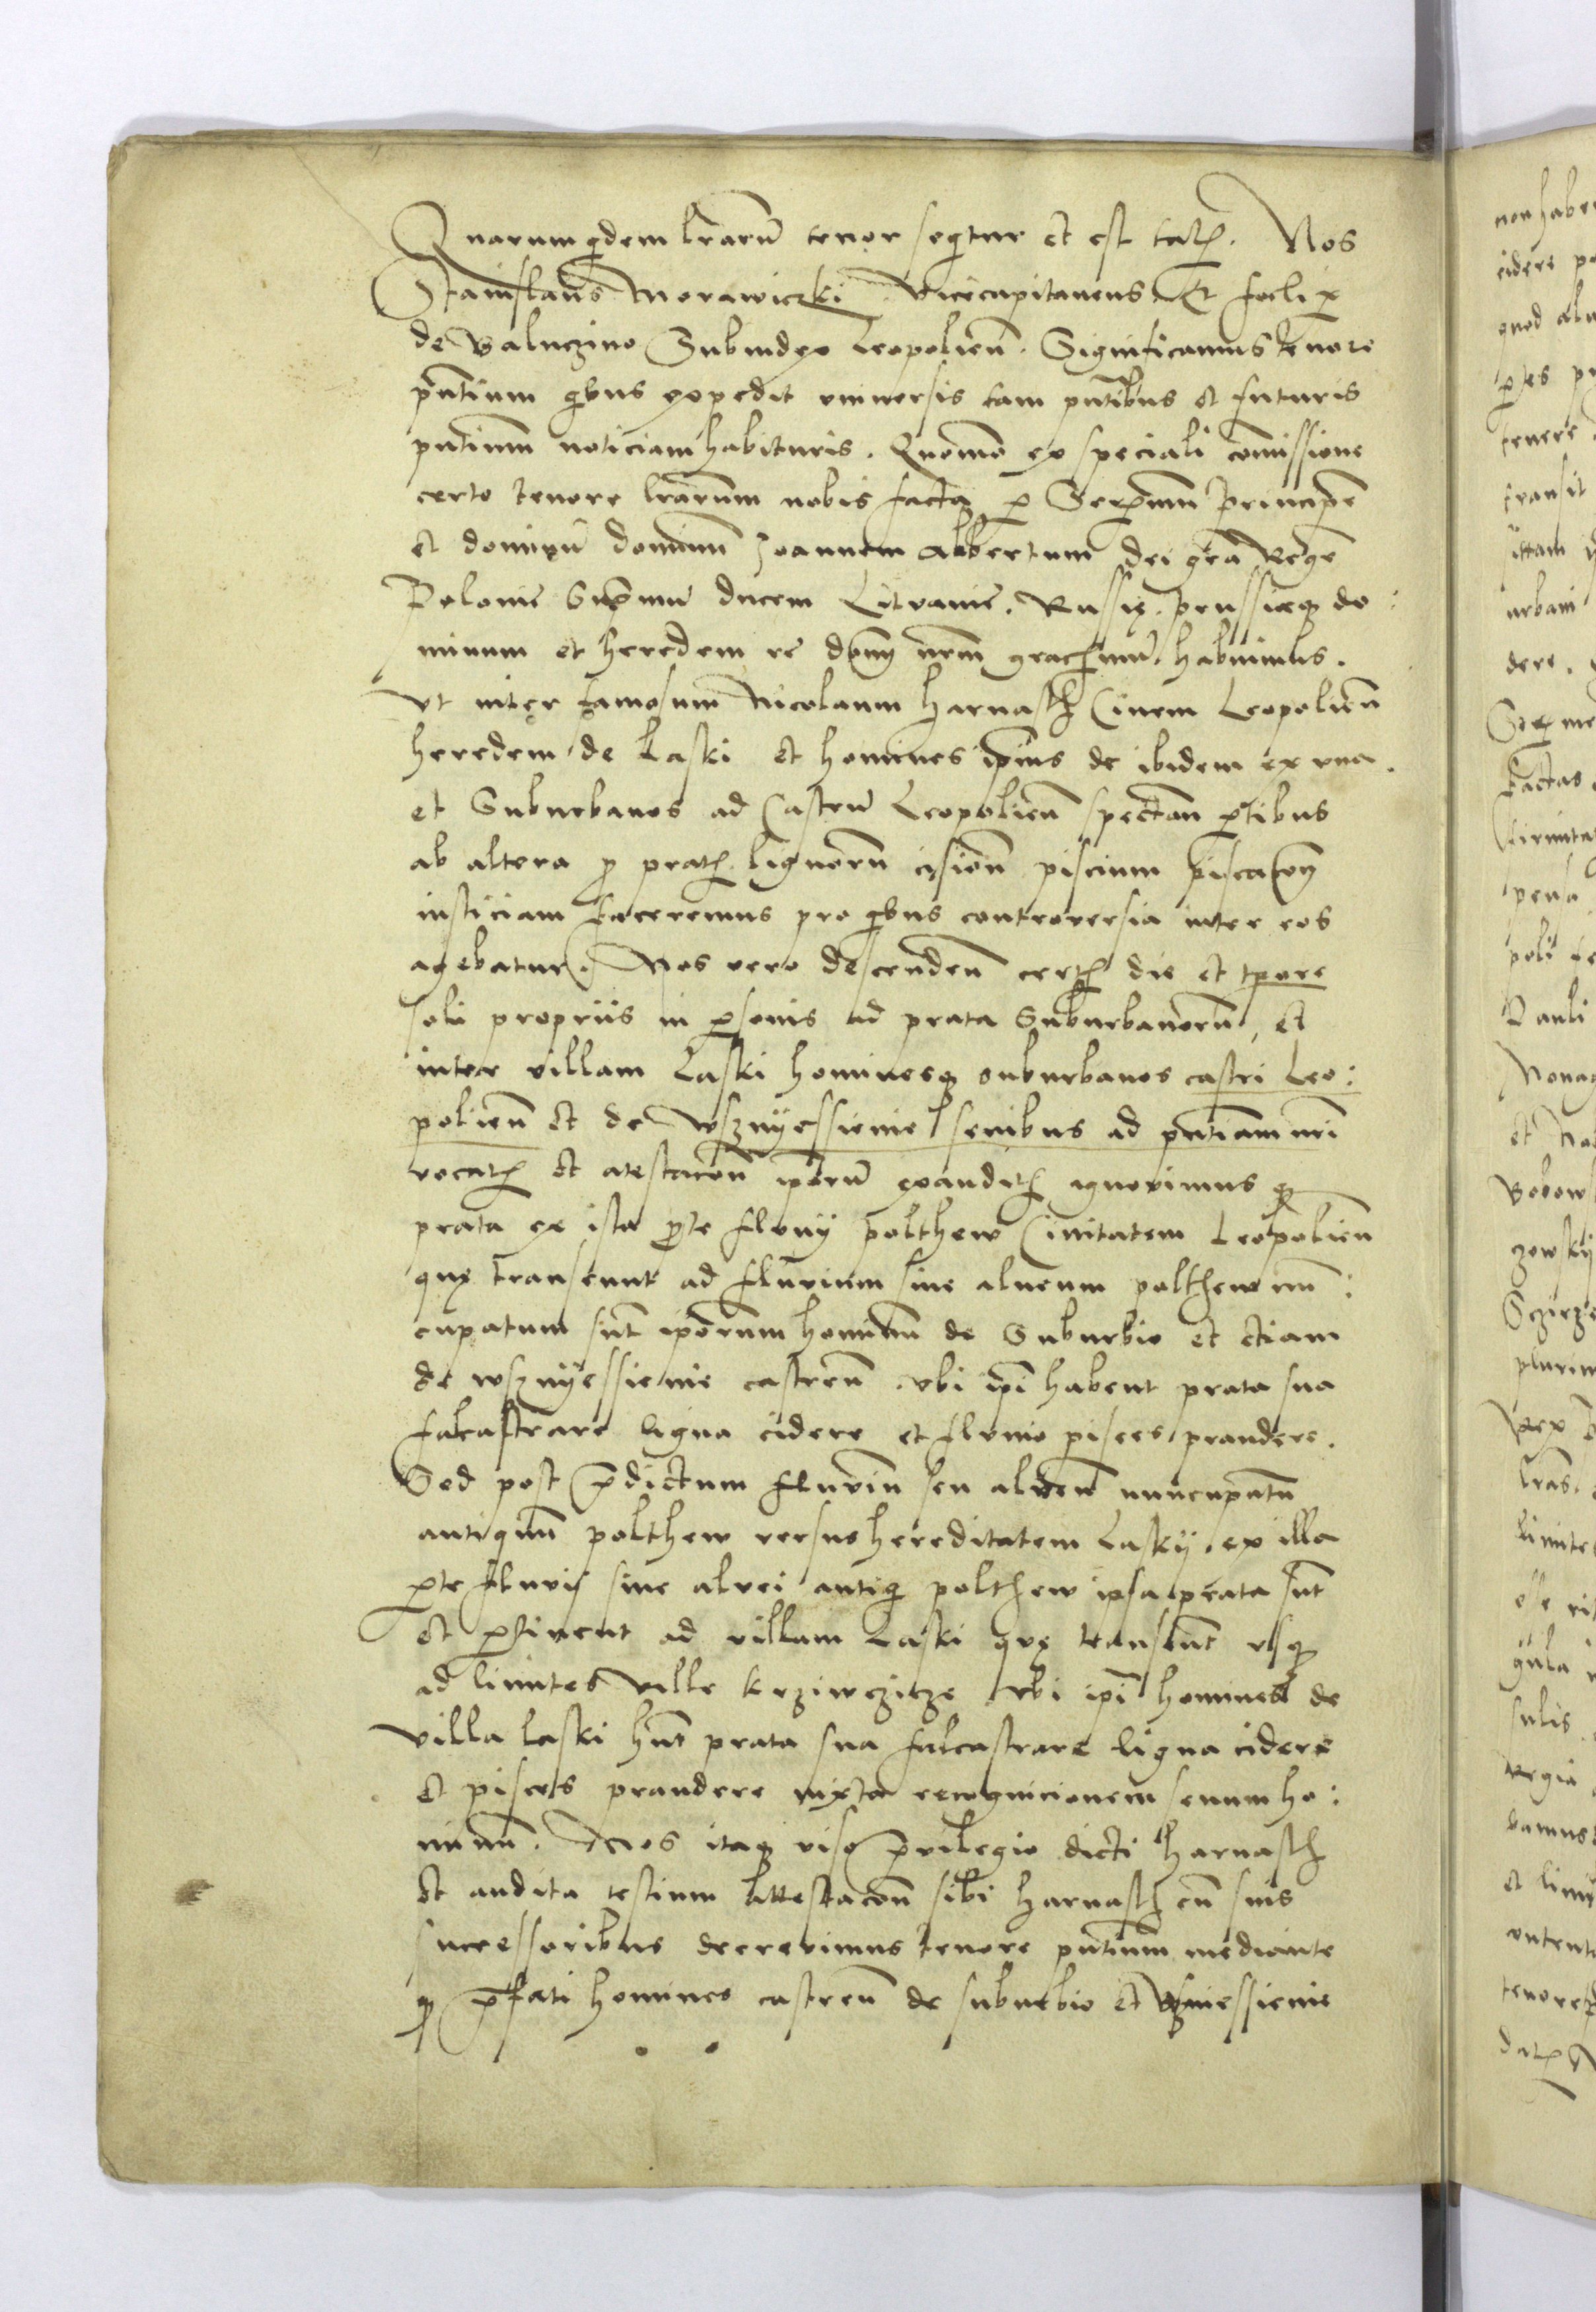 Quarum qdem lrarū tenor seqitur et est talꝭ. Nos
Stanislaus Morawiczki Vicecapitaneus Et Felix
de Baluczino Subiudex Leopolien̄. Significamus tenore
pn̄tium qibus expedit vniuersis tam pn̄tibus et futuris
pn̄tium̄ noticiam habituris. Quomo ex speciali com̄issione
certo tenore lrarum nobis facta p Serenmū principē
et dominū dominū Joannem Albertum dei gra Regē
Polonie Supmū ducem Litvanie. Russię. prussieqꝫ do:
minum et heredem re dōm nr̄m gracimū habuimus.
Vt inter famosum Nicolaum Harnasth Ciuem Leopolien̄
heredem de Laski et homines ipius de ibidem ex vna.
et Suburbanos ad Castrū Leopolien̄ spectan̄ ptibus
ab altera p pratꝭ lignorū cision̄ piscium piscacon̄
iusticiam faceremus pro qibus controversia inter eos
agebatur. Nos vero descenden̄ certꝭ die et tpore
soli propriis in psonis ad prata Suburbanorū, et
inter villam Laski hominesqꝫ suburbanos castri Leo:
polien̄ et de Wsznyessienie senibus ad pn̄tiam nr̄i
vocatꝭ et atestacon̄ ipōrū exauditꝭ agnovimus qꝫ
prata ex ista pte fluuy polthew Civitatem Leopolien̄
quę transeunt ad fluvium siue alueum polthew nū:
cupatum sūt ipōrum hominū de Suburbio et etiam
de wsznyessienie castren̄. vbi ipi habent prata sua
falcastrare ligna cidere et fluuio pisces prandere.
Sed post p̄dictum fluviū seu alveū nuncupatū
antiquū polthew versus hereditatem Lasky. ex illa
pte fluvij siue alvei antiqi polthew ipsa prata sūt
et ptinent ad villam Laski quę transeūt vsqꝫ
ad limites ville krziwczicze vbi ipi homines de
villa laski hn̄t prata sua falcastrare ligna cidere
et pisces prandere iuxta recognicionem senum ho:
minū. Nos itaqꝫ viso p̄vilegio dicti Harnasth
et audita testium attestacon̄ sibi Harnasth cū suis
successoribus decrevimus tenore pn̄tium mediante
qꝫ p̄fati homines castren̄ de suburbio et Wzniessienie